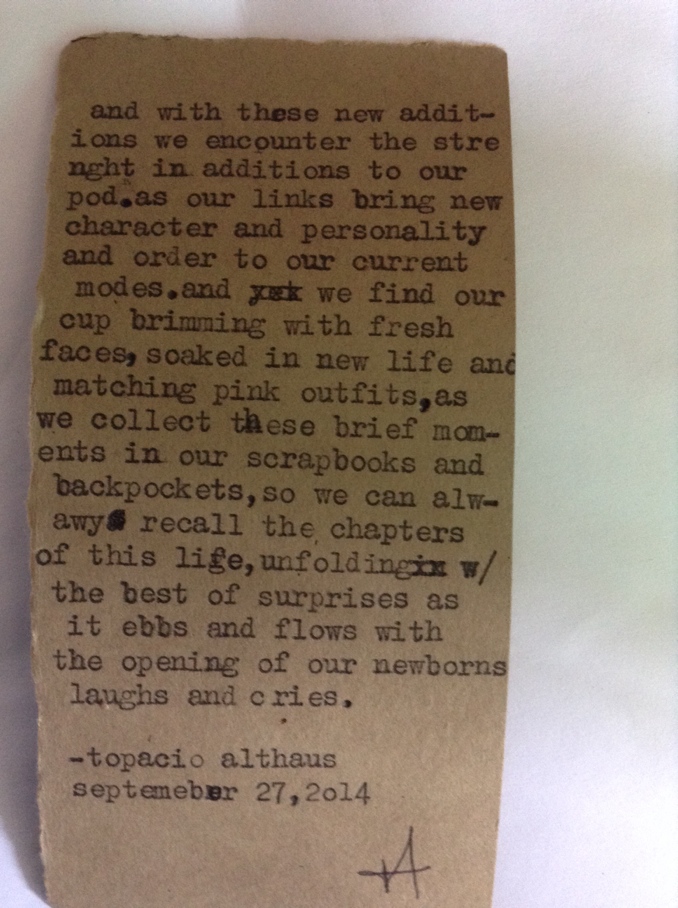 and with these new addit-
ions we encounter the stre
nght in additions to our
pod.as our links bring new
character and personality
and order to our current
modes.and we find our
cup brimming with fresh
faces,soaked in new life and
matching pink outfits,as
we collect these brief mom-
ents in our scrapbooks and
backpockets,so we can alw-
awys recall the chapters
of this life,unfolding w/
the best of surprises as
it ebbs and flows with
the opening of our newborns
laughs and cries.
-topacio althaus
septemeber 27,2o14
tA